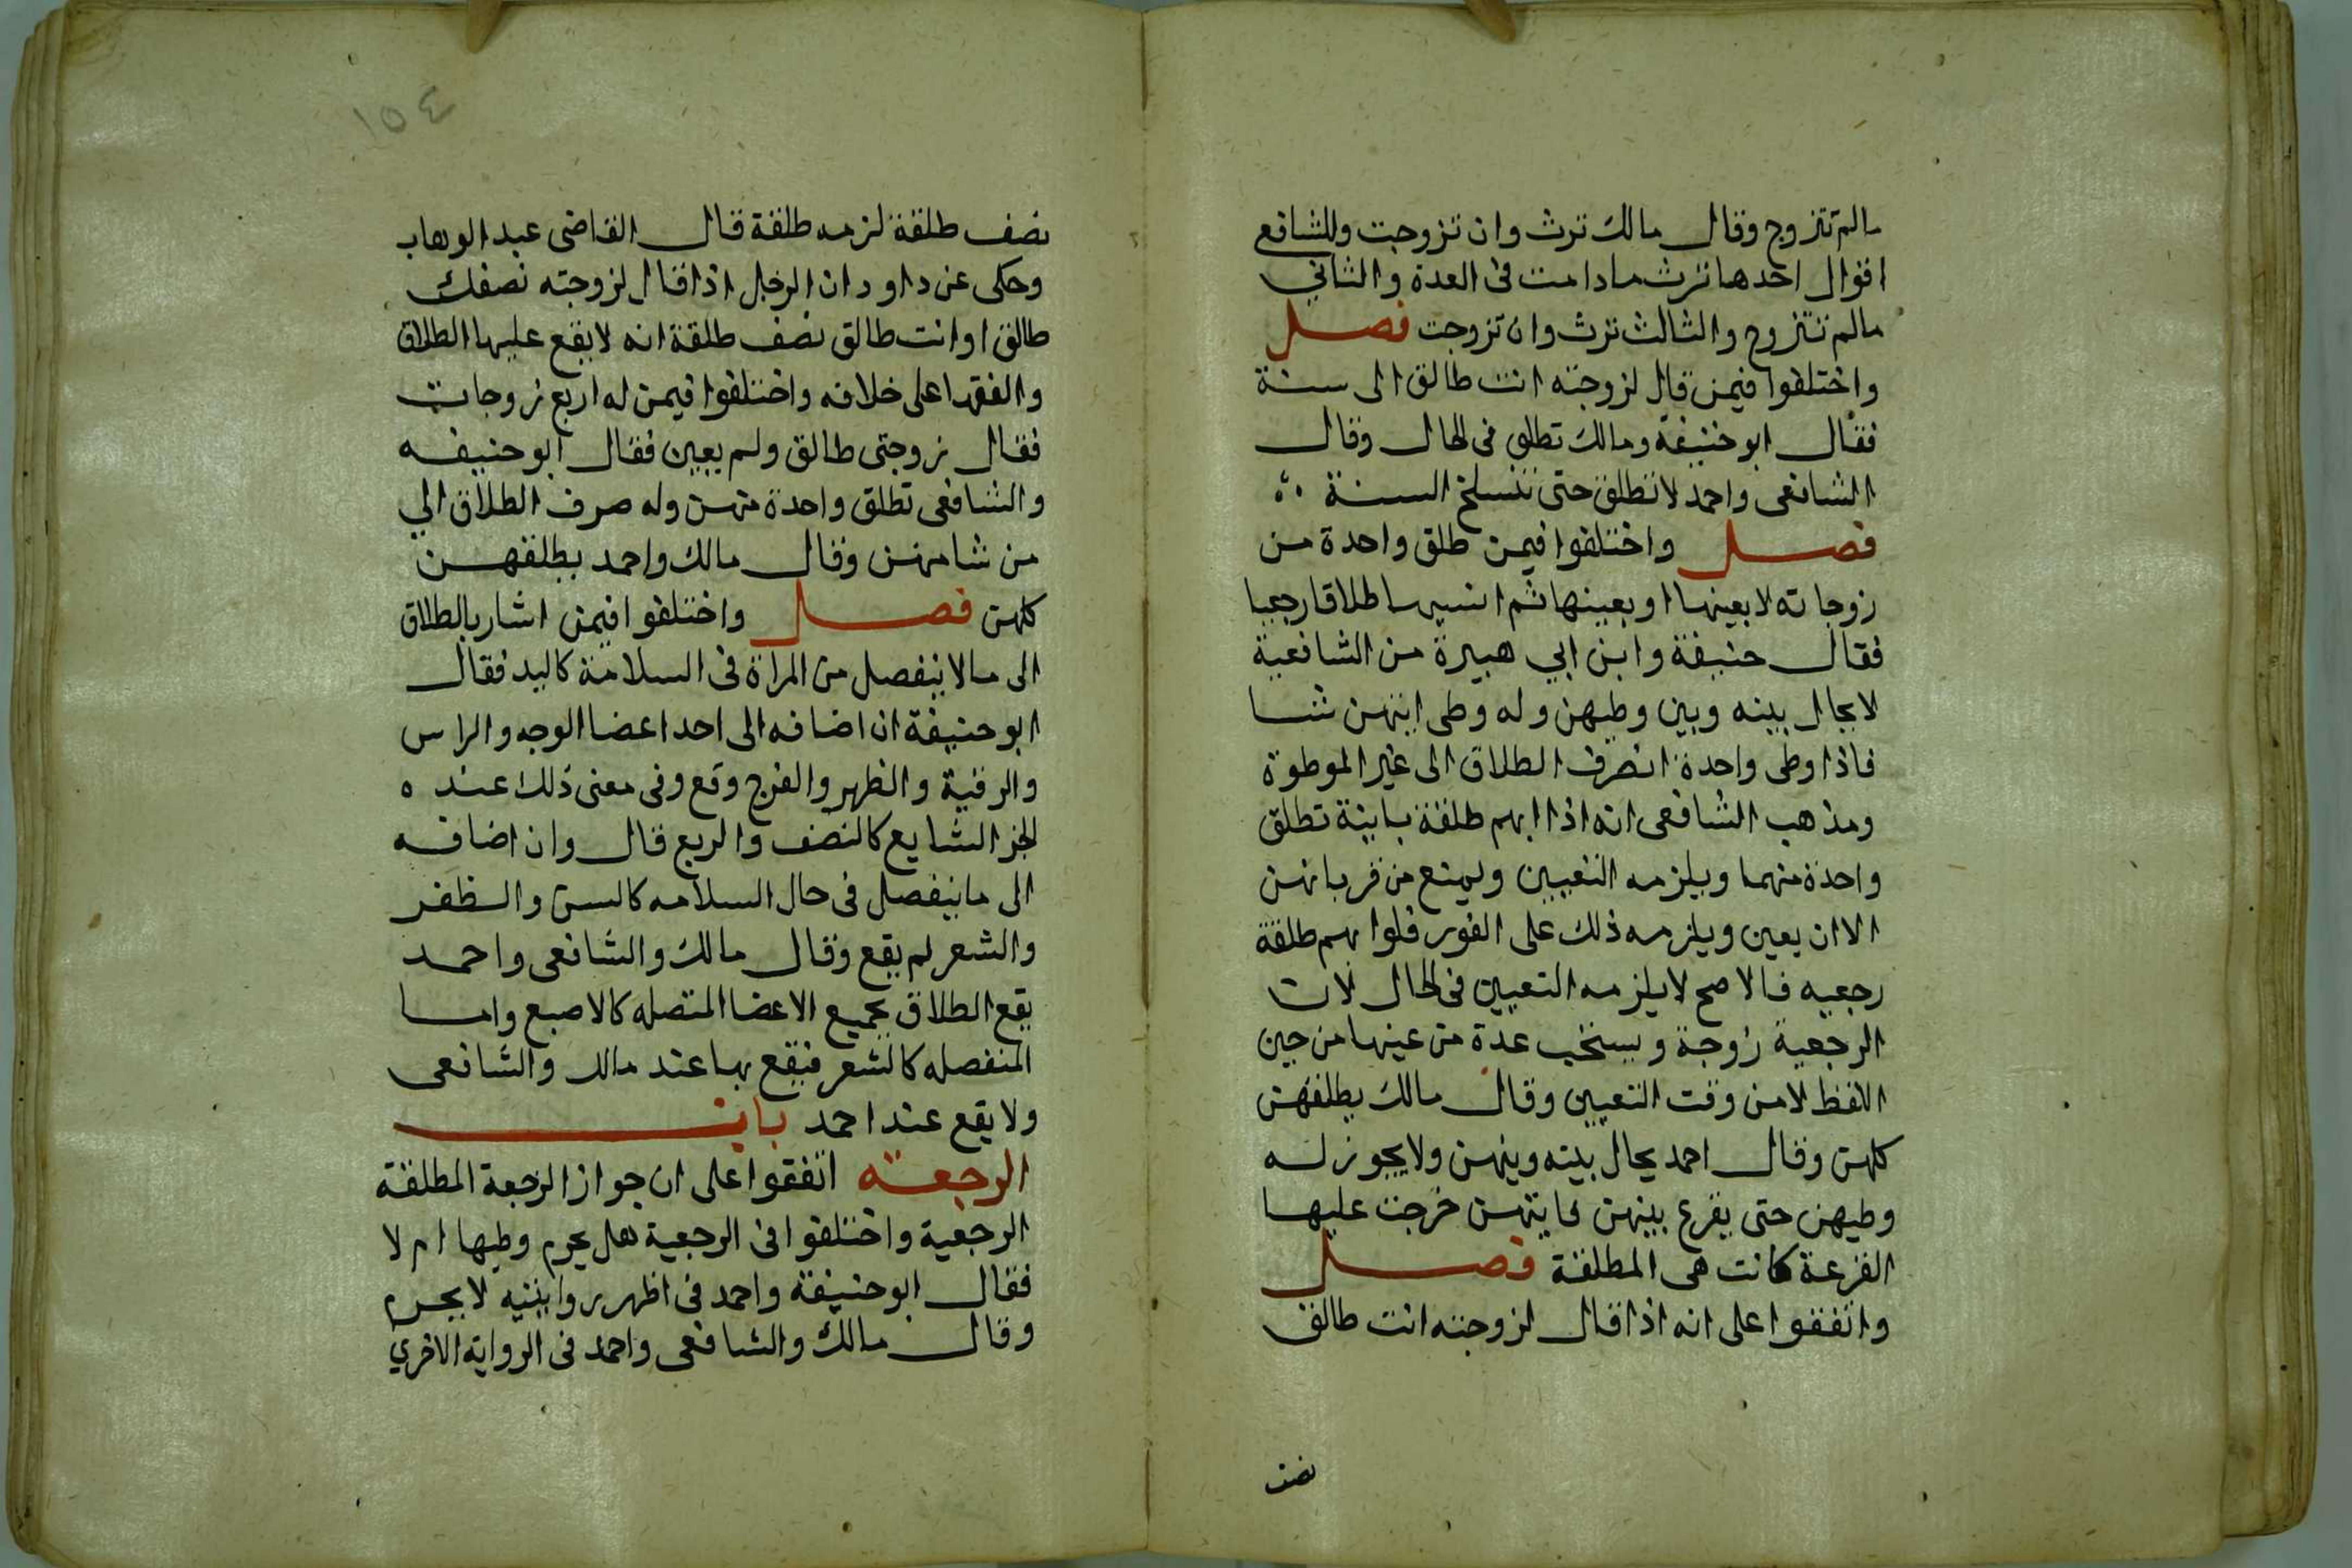 مالم تتزوج وقال مالك ترث وان تزوجت وللشافعي
اقوال احدها ترث مادامت في العدة والثاني
مالم تتزوج والثالث ترث وان تزوجت فصل
واختلفوا فيمن قال لزوجته انت طالق الى سنة
فقال ابو حنيفة ومالك تطلق في الحال وقال
الشافعي واحمد لا تطلق حتى تنسلخ السنة
فصل واختلفوا فيمن طلق واحدة من
زوجاته لا بعينها او بعينها ثم انسيها طلاقا رجعيا
فقال حنيفة وابن ابي هبيرة من الشافعية
لا يحال بينه وبين وطيهن وله وطى ايتهن شا
فاذا وطى واحدة انصرف الطلاق الى غير الموطوة
ومذهب الشافعي انه اذا ابهم طلقة باينة تطلق
واحدة منهما ويلزمه التعيين ويمنع من قربانهن
الا ان يعين ويلزمه ذلك على الفور فلو ابهم طلقة
رجعيه فالاصح لا يلزمه التعيين في الحال لان
الرجعية زوجة ويستحب عدة من عينها من حين
اللفظ لا من وقت التعيين وقال مالك يطلقهن
كلهن وقال احمد يحال بينه وبينهن ولا يجوز له
وطيهن حتى يقرع بينهن فايتهن خرجت عليها
القرعة كانت هي المطلقة فصل
واتفقوا على انه اذا قال لزوجته انت طالق
نصف
١٥٤
نصف طلقة لزمه طلقة قال القاضي عبد الوهاب
وحكى عن داود ان الرجل اذا قال لزوجته نصفك
طالق او انت طالق نصف طلقة انه لا يقع عليها الطلاق
والفقها على خلافه واختلفوا فيمن له اربع زوجات
فقال زوجتي طالق ولم يعين فقال ابو حنيفه
والشافعي تطلق واحدة منهن وله صرف الطلاق الي
من شا منهن وقال مالك واحمد يطلقهن
كلهن فصل واختلفوا فيمن اشار بالطلاق
الى ما لا ينفصل من المراة في السلامة كاليد فقال
ابو حنيفة ان اضافه الى احد اعضا الوجه والراس
والرقبة والظهر والفرج وقع وفي معنى ذلك عنده
الجز الشايع كالنصف والربع قال وان اضافه
الى ما ينفصل في حال السلامه كالسن والظفر
والشعر لم يقع وقال مالك والشافعي واحمد
يقع الطلاق بجميع الاعضا المتصله كالاصبع واما
المنفصله كالشعر فيقع بها عند مالك والشافعي
ولا يقع عند احمد باب
الرجعة اتفقوا على ان جواز الرجعة المطلقة
الرجعية واختلفوا في الرجعية هل يحرم وطيها ام لا
فقال ابو حنيفة واحمد في اظهر روايتيه لا يحرم
وقال مالك والشافعي واحمد في الرواية الاخري